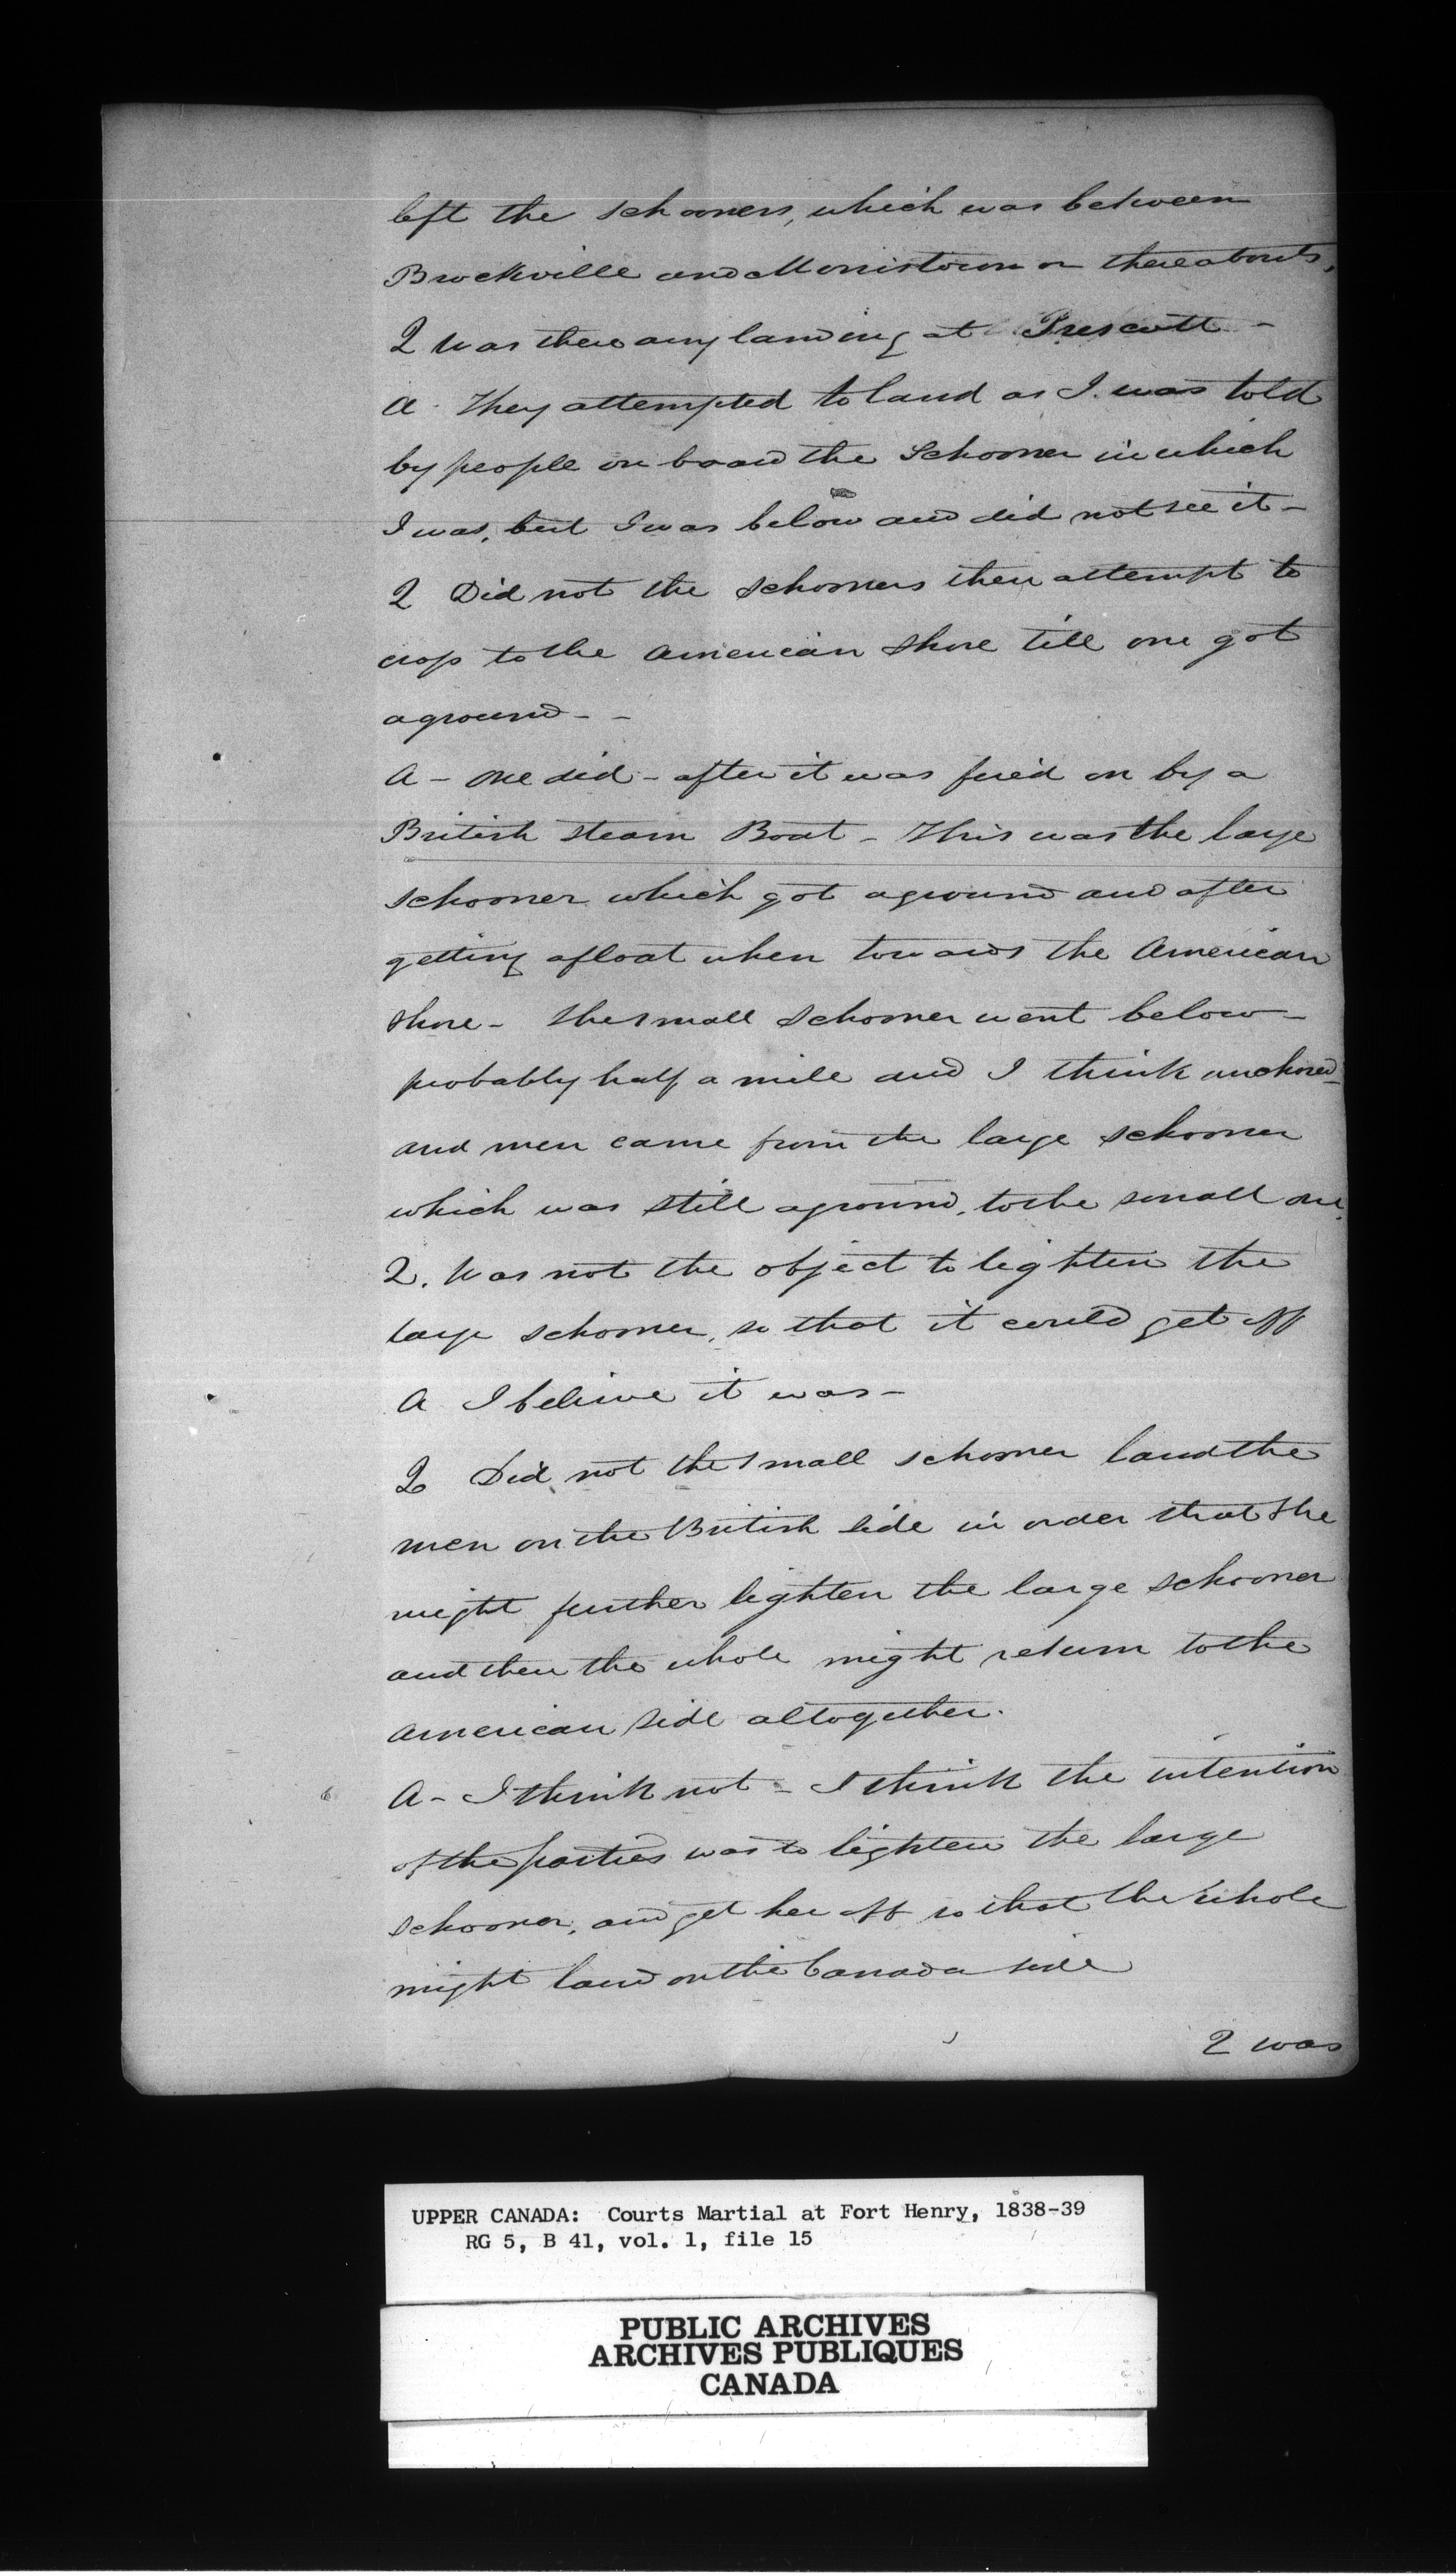 left the schooners, which was between
Brockville and Morristown or thereabouts,
Q Was there any landing at Prescott -
A. They attempted to land as I was told
by people on board the Schooner in which
I was, but I was below and did not see it -
Q Did not the schooners then attempt to
cross to the American shore till one got
aground - -
A - One did - after it was fired on by a
British Steam Boat - This was the large
schooner which got aground and after
getting afloat when towards the American
shore - The small schooner went below -
probably half a mile and I think anchored -
and men came from the large schooner
which was still aground, to the small one.
Q. Was not the object to lighten the
large schooner, so that it could get off
A I believe it was -
Q Did not the small schooner land the
men on the British side in order that she
might further lighten the large schooner
and then the whole might return to the
American side altogether.
A - I think not - I think the intention
of the parties was to lighten the large
schooner, and get her off so that the whole
might land on the Canada side
Q was
UPPER CANADA: Courts Martial at Fort Henry, 1838-39
RG 5, B 41, vol. 1, file 15
PUBLIC ARCHIVES
ARCHIVES PUBLIQUES
CANADA